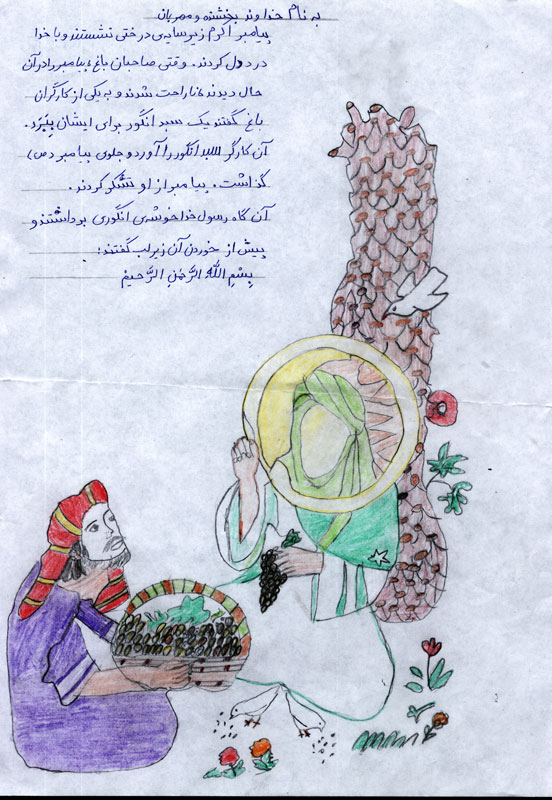 به نام خداوند بخشنده و مهربان
پیامبر اکرم زیر سایه‌ی درختی نشستند و با خدا
درد دل کردند. وقتی صاحبان باغ، پیامبر را در آن
حال دیدند، ناراحت شدند و به یکی از کارگران
باغ گفتند یک سبد انگور برای ایشان ببَرَد.
آن کارگر سبد انگور را آورد و جلوی پیامبر (ص)
گذاشت. پیامبر از او تشکر کردند.
آن گاه رسول خدا خوشه‌ی انگوری برداشتند و
پیش از خوردن آن زیر لب گفتند:
بِسْمِ اللهِ الرَّحْمٰنِ الرَّحیمْ